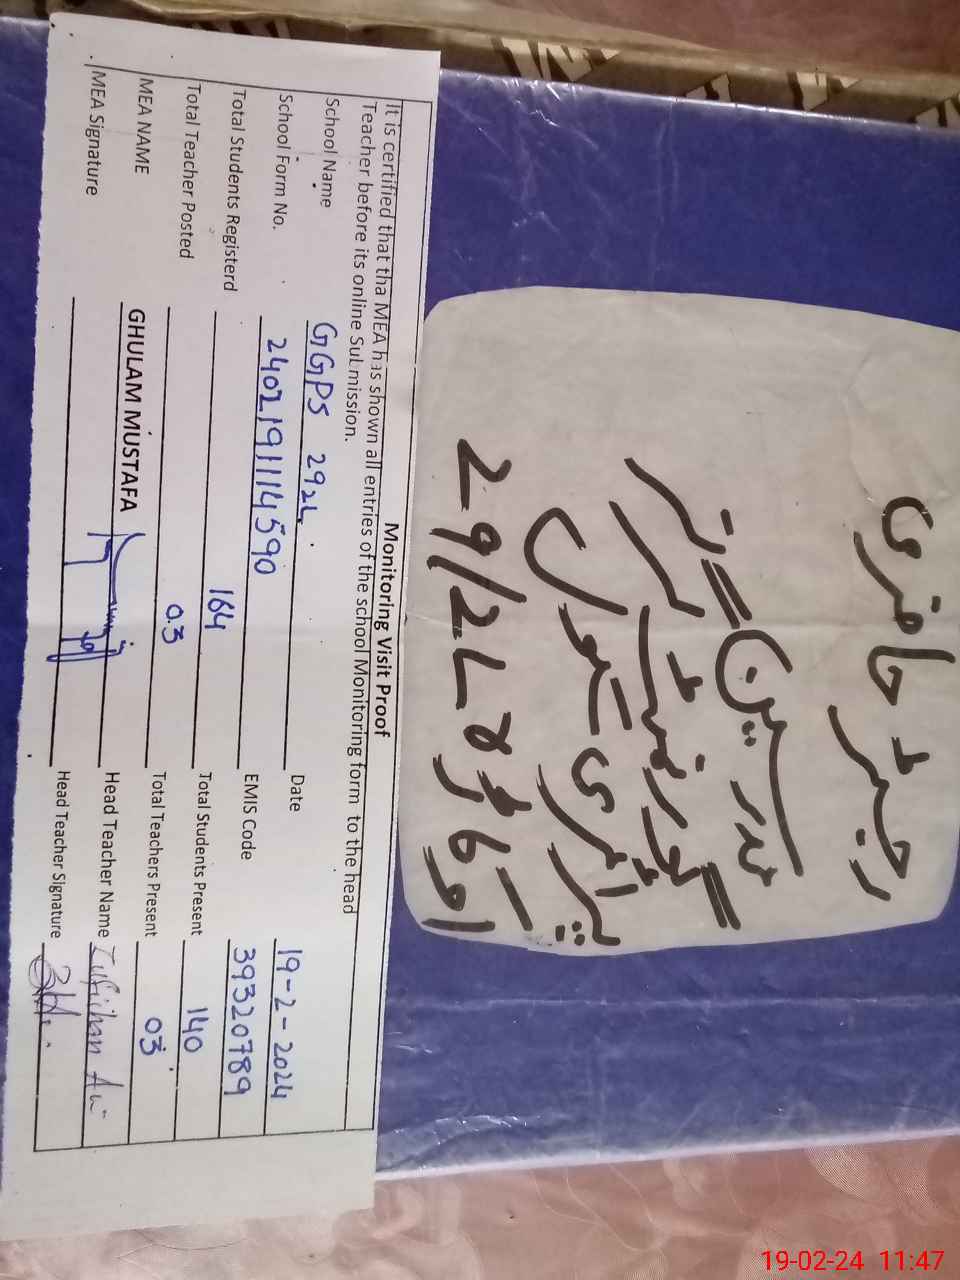 رجسٹر حاضری
مدرسین
گورنمنٹ گرلز
پرائمری سکول
29/2L
اوکاڑہ
Monitoring Visit Proof
It is certified that tha MEA has shown all entries of the school Monitoring form to the head
Teacher before its online Submission.
School Name GGPS 292L Date 19-2-2024
School Form No. 2402191114590 EMIS Code 39320789
Total Students Registerd 164 Total Students Present 140
Total Teacher Posted 03 Total Teachers Present 03
MEA NAME GHULAM MUSTAFA Head Teacher Name
MEA Signature Head Teacher Signature
19-02-24 11:47